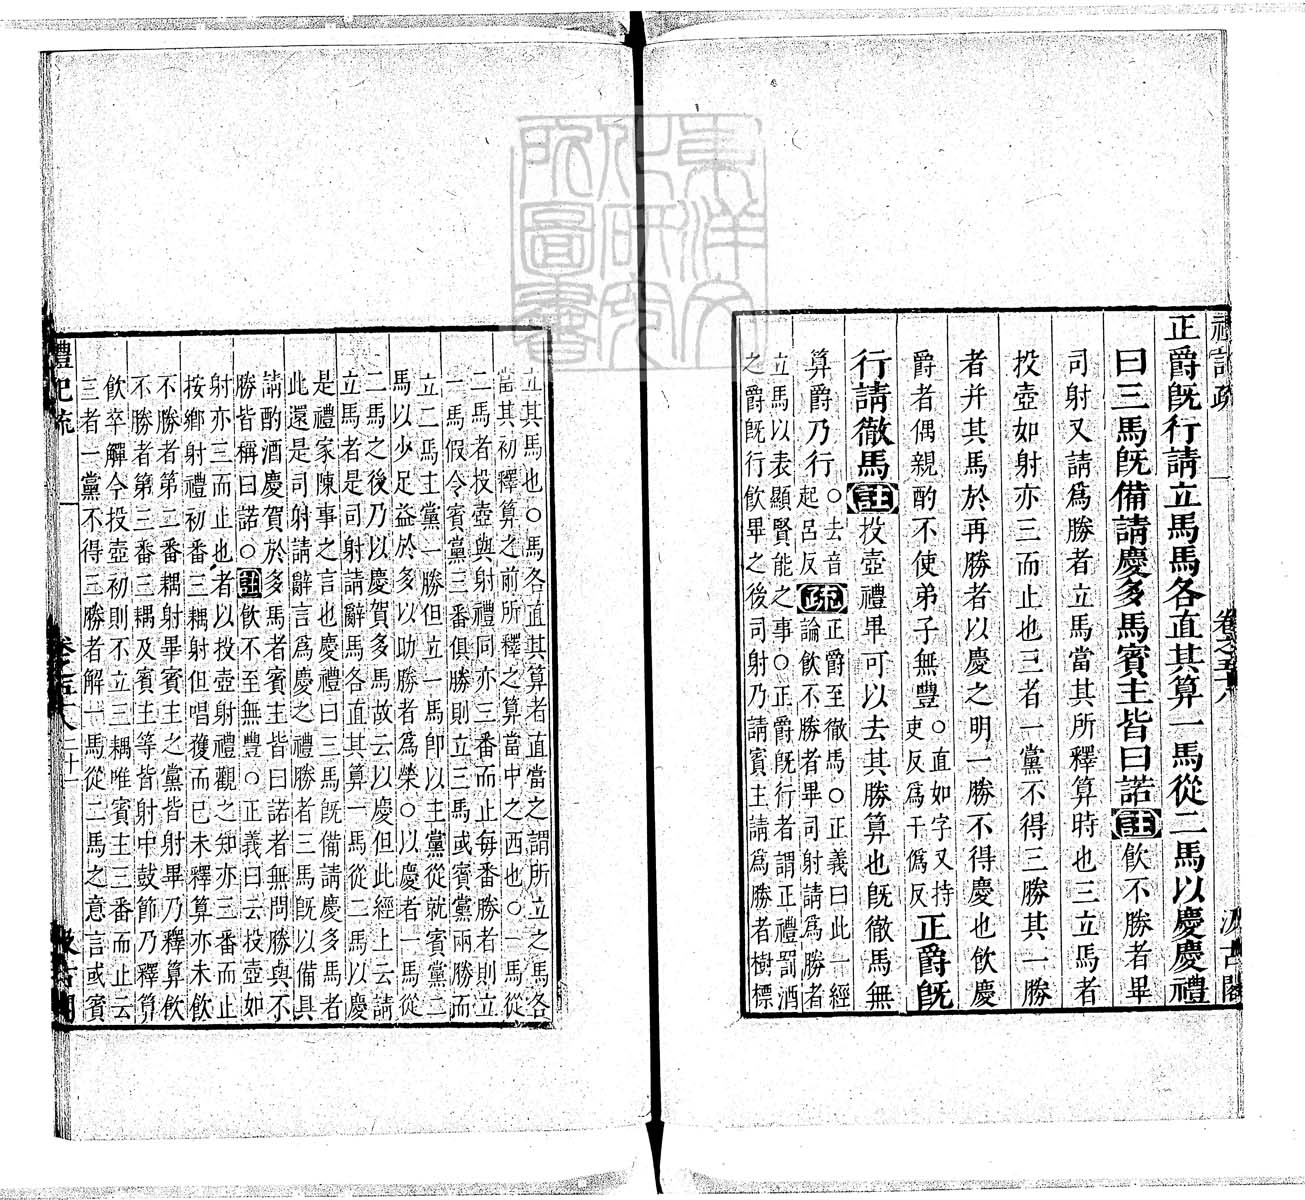 禮記疏 卷之五十八 汲古閣
正爵既行請立馬馬各直其算一馬從二馬以慶慶禮
曰三馬既備請慶多馬賓主皆曰諾註飲不勝者畢
司射又請爲勝者立馬當其所釋算時也三立馬者
投壺如射亦三而止也三者一黨不得三勝其一勝
者并其馬於再勝者以慶之明一勝不得慶也飲慶
爵者偶親酌不使弟子無豐○直如字又持
吏反爲于僞反
正爵既
行請徹馬註投壺禮畢可以去其勝算也既徹馬無
算爵乃行○去音
起呂反
疏正爵至徹馬○正義曰此一經
論飲不勝者畢司射請爲勝者
立馬以表顯賢能之事○正爵既行者謂正禮罰酒
之爵既行飲畢之後司射乃請賓主請爲勝者樹標
立其馬也○馬各直其算者直當之謂所立之馬各
當其初釋算之前所釋之算當中之西也○一馬從
二馬者投壺與射禮同亦三番而止每番勝者則立
一馬假令賓黨三番俱勝則立三馬或賓黨兩勝而
立二馬主黨一勝但立一馬卽以主黨從就賓黨二
馬以少足益於多以助勝者爲榮○以慶者一馬從
二馬之後乃以慶賀多馬故云以慶但此經上云請
立馬者是司射請辭馬各直其算一馬從二馬以慶
是禮家陳事之言也慶禮曰三馬既備請慶多馬者
此還是司射請辭言爲慶之禮勝者三馬既以備具
請酌酒慶賀於多馬者賓主皆曰諾者無問勝與不
勝皆稱曰諾○註飲不至無豐○正義曰云投壺如
射亦三而止也者以投壺射禮觀之知亦三番而止
按鄉射禮初番三耦射但唱獲而已未釋算亦未飲
不勝者第二番耦射畢賓主之黨皆射畢乃釋算飲
不勝者第三番三耦及賓主等皆射中鼓節乃釋算
飲卒觶今投壺初則不立三耦唯賓主三番而止云
三者一黨不得三勝者解一馬從二馬之意言或賓
禮記疏 卷之五十八 二十一 汲古閣
東洋文化研究所圖書